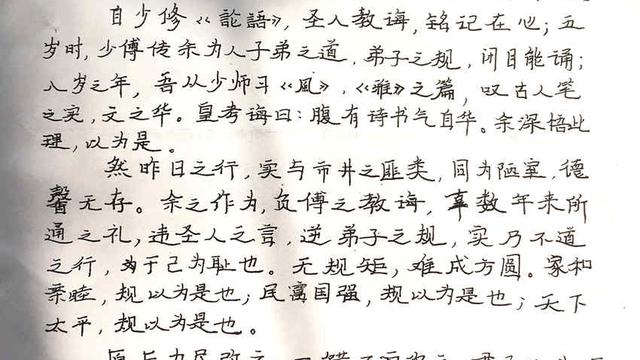 自少修《論語》，圣人教诲，铭记在心；五
岁时，少傅传余为人子弟之道，弟子之规，闭目能诵；
八岁之年，吾从少师习《風》、《雅》之篇，叹古人笔
之实，文之华。皇考诲曰：腹有诗书气自华。余深悟此
理，以为是。
然昨日之行，实与市井之匪类，同为陋室，德
馨无存。余之作为，负傅之教诲，辜数年来所
通之礼，违圣人之言，逆弟子之规，实乃不道
之行，为于己为耻也。无规矩，难成方圆。家和
亲睦，规以为是也；民富国强，规以为是也；天下
太平，规以为是也。